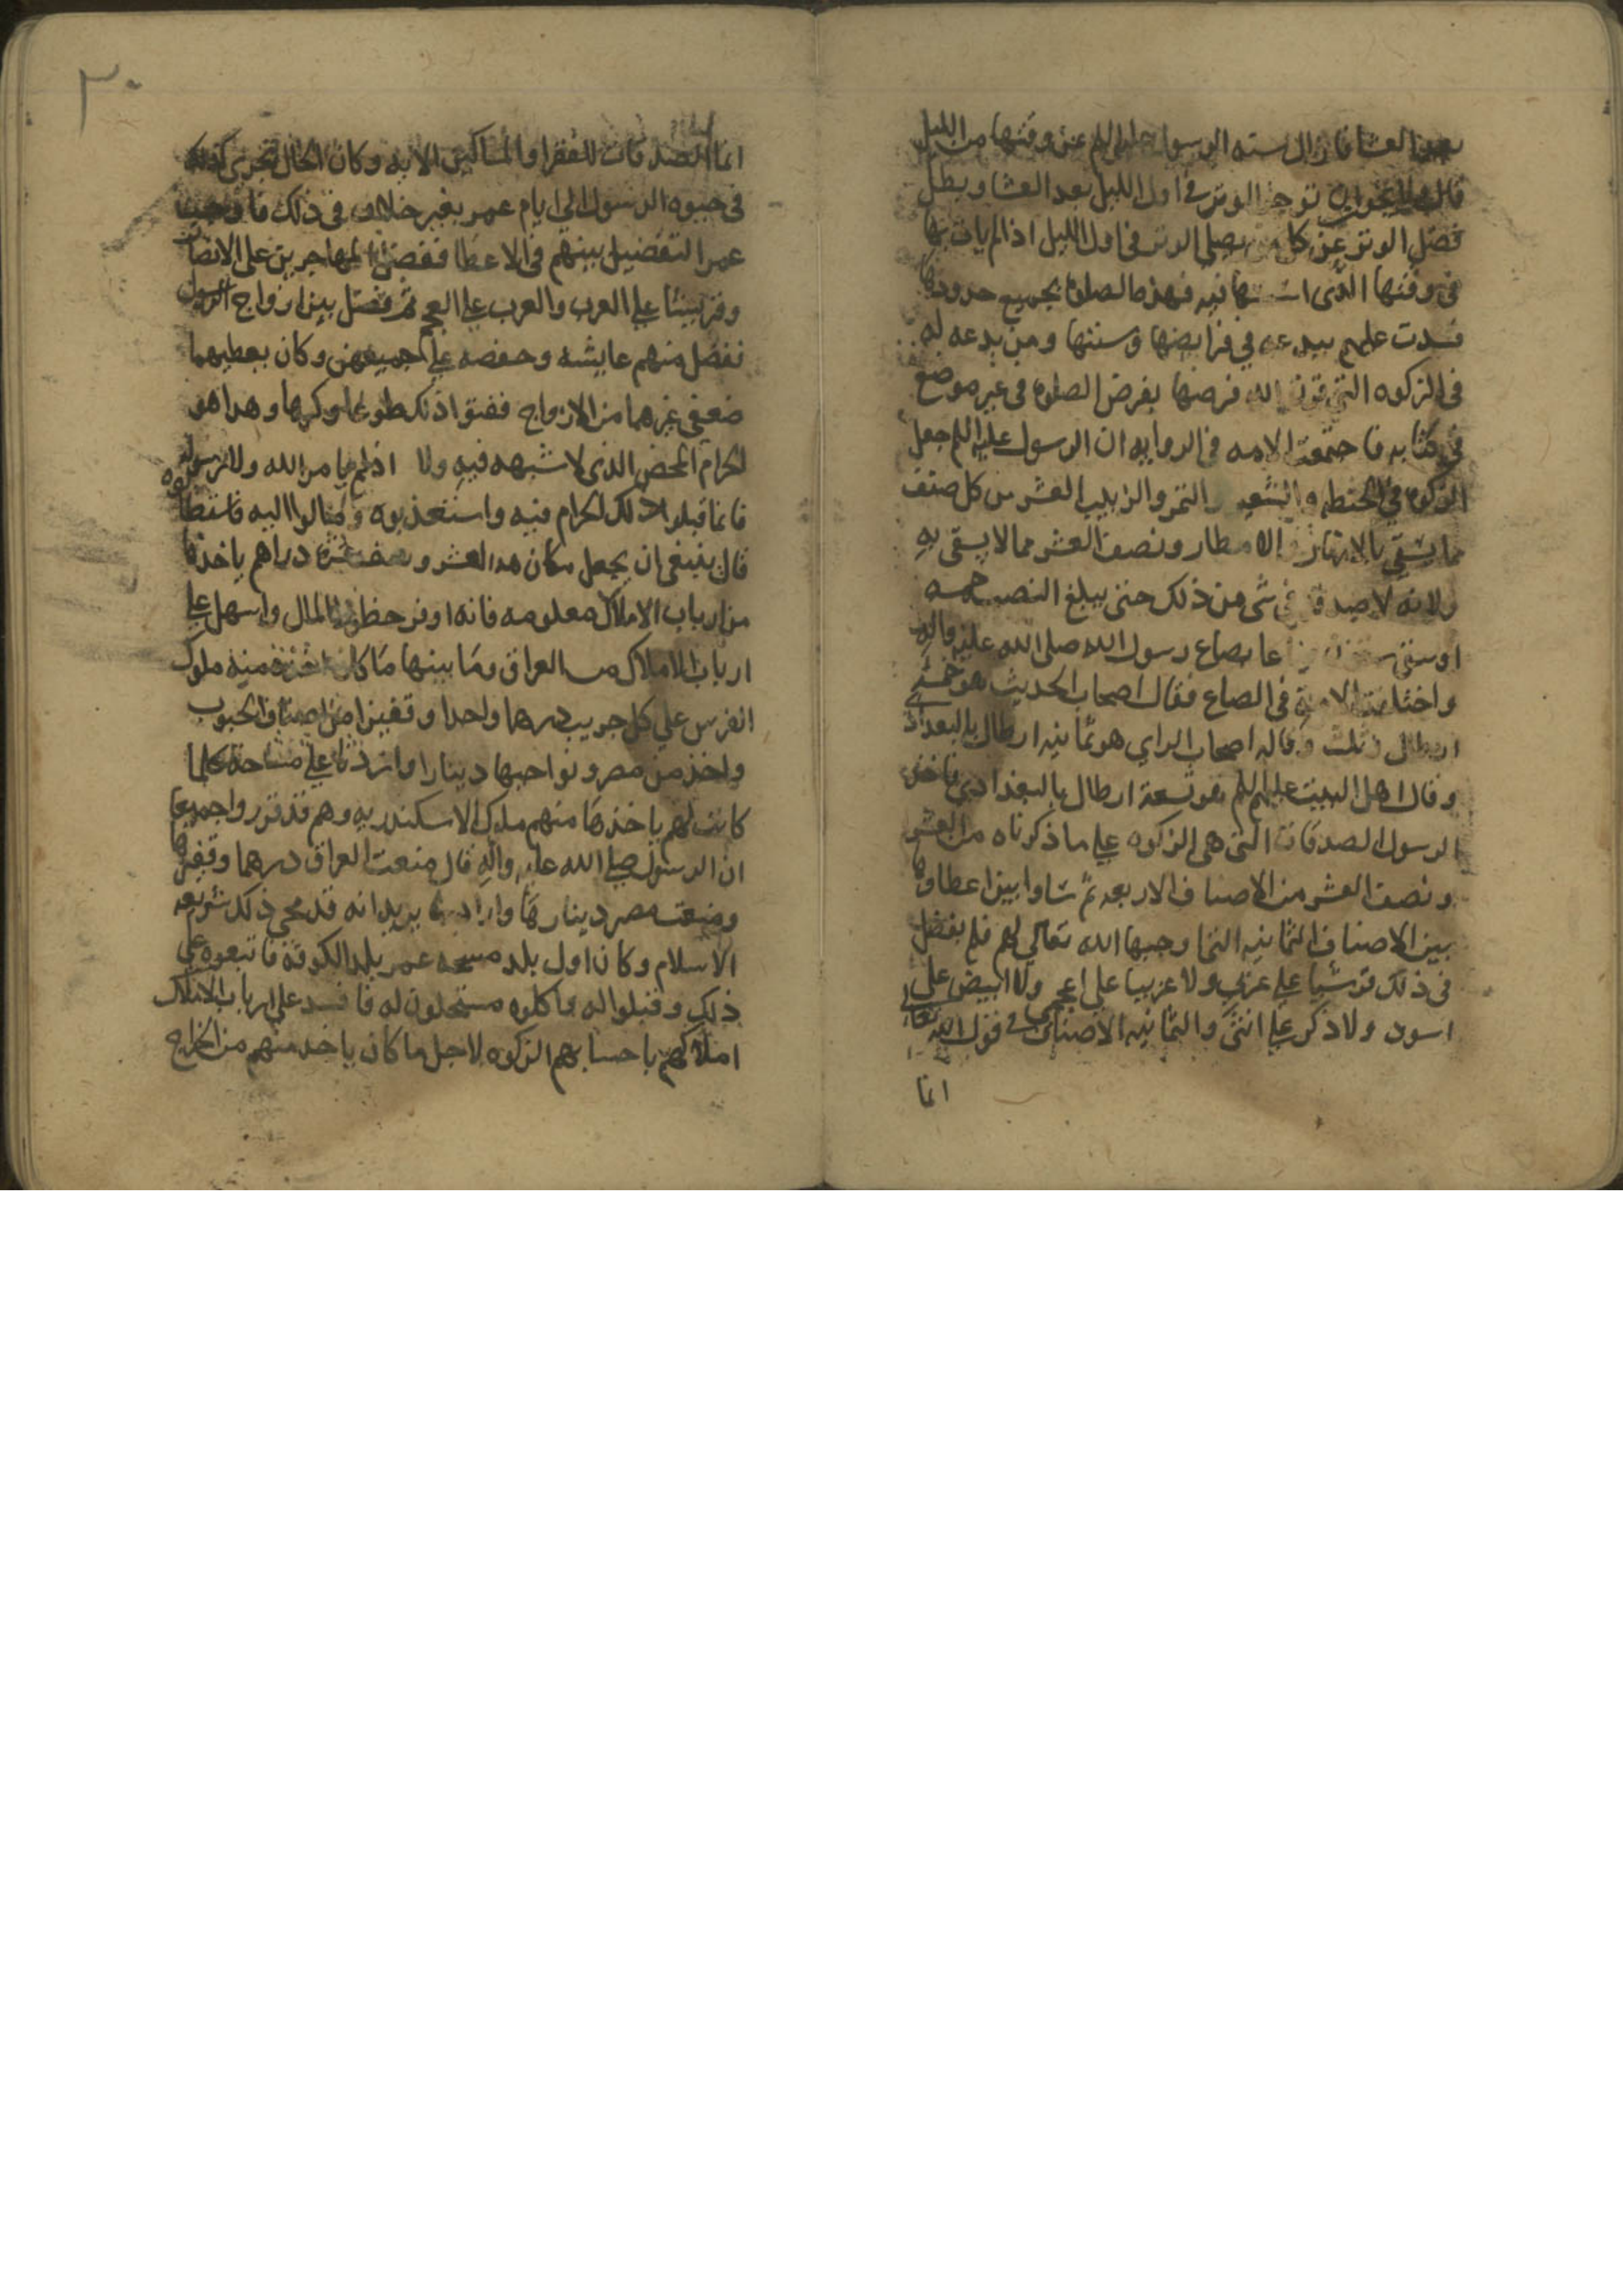 بعد العشا فازال سنه الرسول عليه السلم عن وقتها من الليل
قال توخر الوتر في اول الليل بعد العشا وبطل
فضل الوتر عن كل من يصلي الوتر في اول الليل اذا لم يات بها
في وقتها الذي فيه فهذه الصلوة بجميع حدودها
فسدت عليهم ببدعه في فرايضها وسنتها ومن بدعه له
في الزكوه التي قرن الله فرضها بفرض الصلوه في غير موضع
في كتابه فاجتمعت الامه في الروايه ان الرسول عليه السلم جعل
الزكوه في الحنطه والشعير والتمر والزبيب العشر من كل صنف
مما يسقي بالانهار والامطار ونصف العشر مما لا يسقى به
ولانه لا صدقة في شي من ذلك حتى يبلغ خمسه
اوسق بصاع رسول الله صلى الله عليه واله
واختلفت الامة في الصاع فقال اصحاب الحديث هو خمسة
ارطال وثلث وقال اصحاب الراي هو ثمانيه ارطال بالبغدادي
وقال اهل البيت عليهم السلم هو تسعة ارطال بالبغدادي فاخذ
الرسول الصدقات التي هي الزكوه علي ما ذكرناه من العشر
ونصف العشر من الاصناف الاربعه ثم ساوا بين اعطاوها
بين الاصناف الثمانيه التما وجبها الله تعالي لهم فلم يفضل
في ذلك قرشيا علي عربي ولا عربيا على اعجمي ولا ابيض على
اسود ولا ذكر علي انثى والثمانيه الاصناف في قول الله تعالي
انما
٣٠
انما الصدقات للفقرا والمساكين الايه وكان الحال تجري كذلك
في حيوه الرسول الي ايام عمر بغير خلاف في ذلك فاوجب
عمر التفضيل بينهم في الاعطا ففضل المهاجرين على الانصار
وقريشا علي العرب والعرب علي العجم ثم فضل بين ازواج الرسول
ففضل منهم عايشه وحفصه علي جميعهن وكان يعطيهما
ضعفي غيرهما من الازواج ففتوا ذلك طوعا وكرها وهذا هو
الحرام المحض الذي لا شبهه فيه ولا اذ لم يامر الله ولا رسوله
فانما قبلوا ذلك الحرام فيه واستعذبوه ومالوا اليه فاسقطوه
قال ينبغي ان يجعل مكان هذا العشر ونصف عشره دراهم ياخذها
من ارباب الاملاك معلومه فانه اوفر حظ للمال واسهل علي
ارباب الاملاك من العراق وما بينها ما كان اخذه منه ملوك
الفرس علي كل جريب درهما واحدا وقفيزا من اصناف الحبوب
واخذ من مصر ونواحيها دينارا واردبا علي مساحة كلما
كانت لهم ياخذها منهم ملوك الاسكندريه وهم قد قرروا جميعا
ان الرسول صلي الله عليه واله قال منعت العراق درهما وقفيزها
ومنعت مصر دينارها واردبها يريد انه قد محي ذلك شريعه
الاسلام وكان اول بلد مسحه عمر بلد الكوفة فاتبعوه علي
ذلك وقبلوا له واكلوه مستحلون له فافسد علي ارباب الاملاك
املاكهم باحسابهم الزكوه لاجل ما كان ياخذ منهم من الخراج